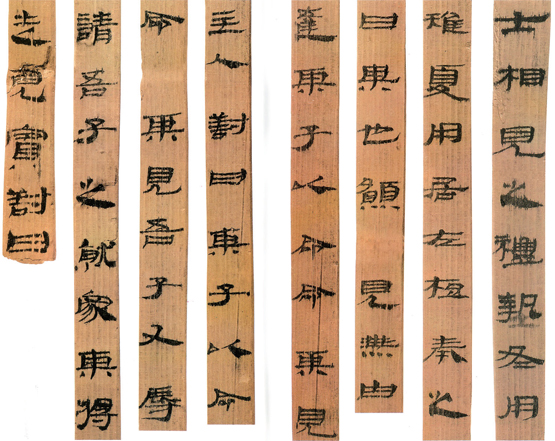 士相見之禮執冬用
雉夏用居左梪奉之
曰某也願見無由
達某子以命命某見
主人對曰某子以命
命某見吾子又辱
請吾子之就家某將
走見賓對曰